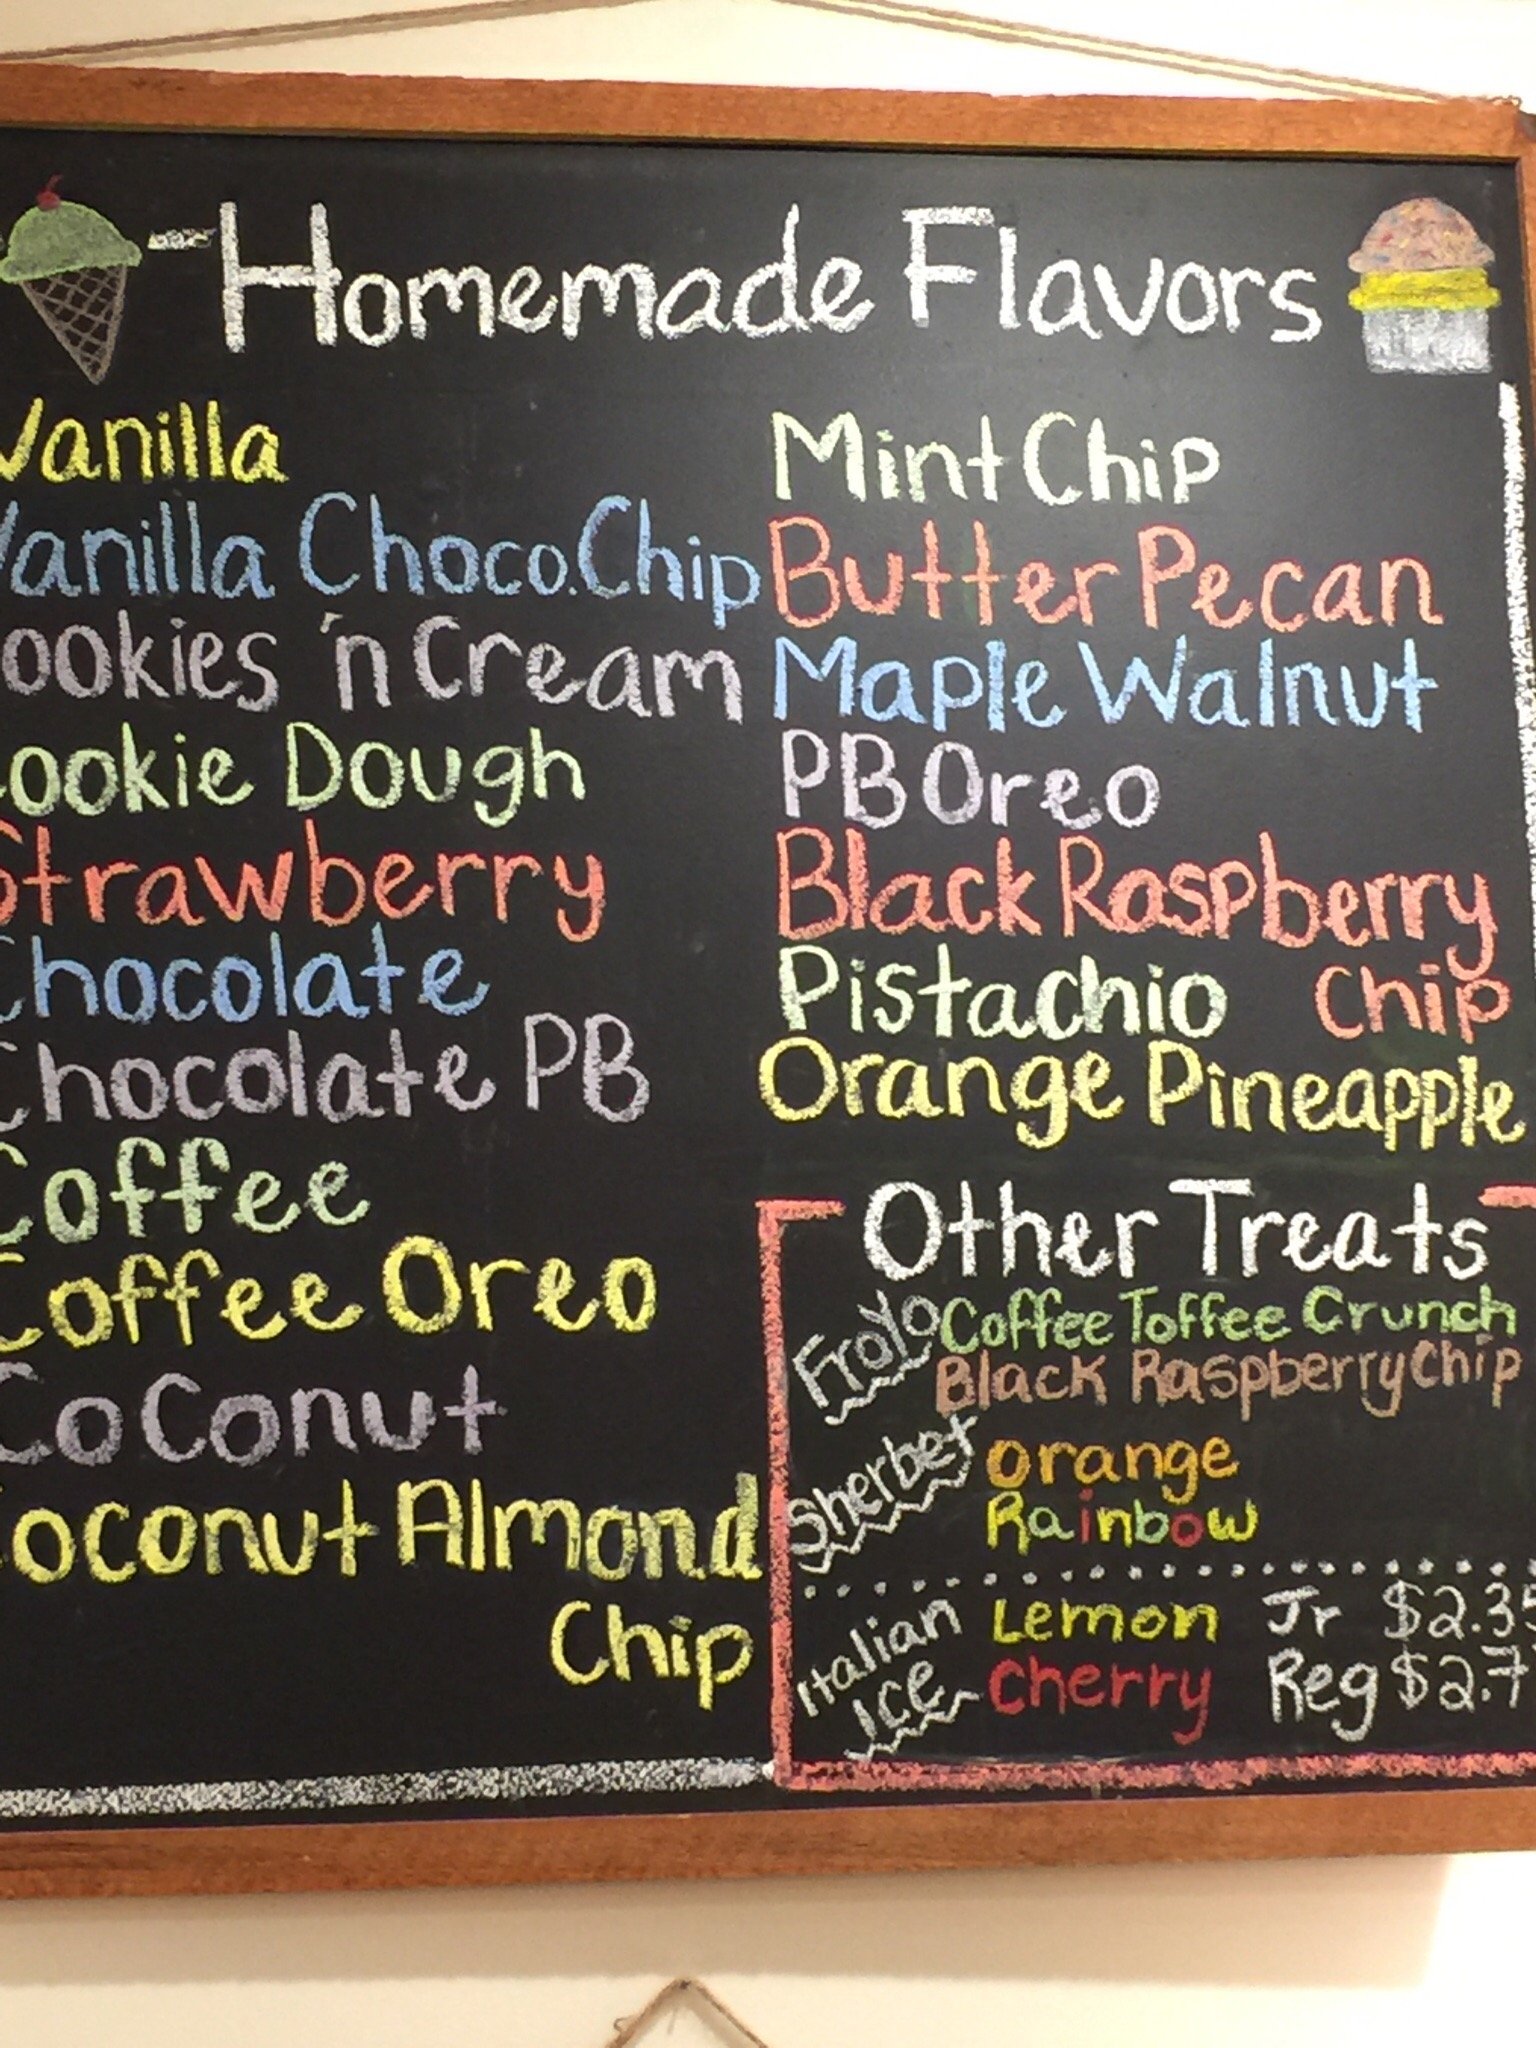 Homemade Flavors
Vanilla
Vanilla Choco.Chip
ookies 'n Cream
ookie Dough
Strawberry
Chocolate
Chocolate PB
Coffee
Coffee Oreo
CoConut
oconut Almond
Chip
Mint Chip
Butter Pecan
Maple Walnut
PB Oreo
Black Raspberry
Chip
Pistachio
Orange Pineapple
Other Treats
FroYo Coffee Toffee Crunch
Black Raspberry Chip
Sherbet orange
Rainbow
Italian Ice Lemon Jr $2.35
Cherry Reg $2.7